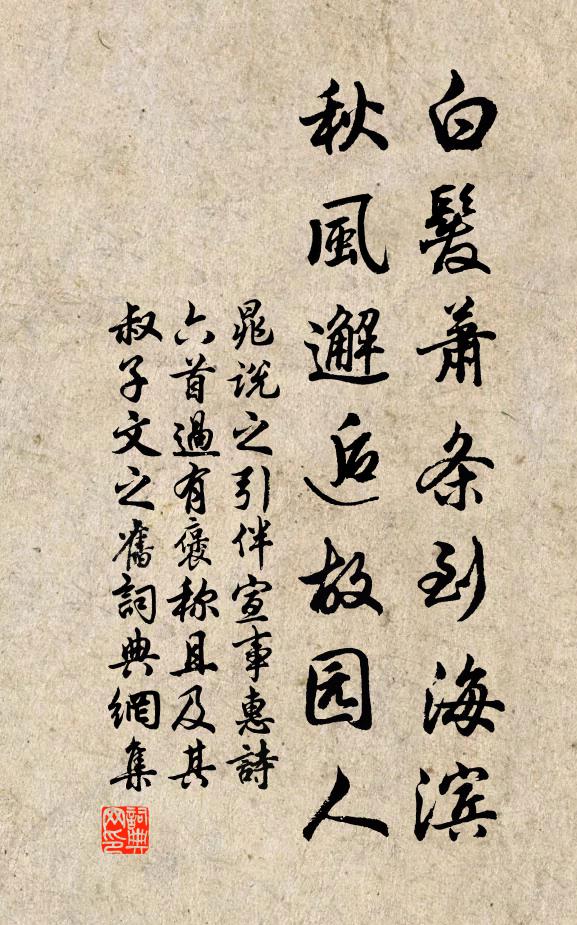 白髮蕭条到海滨
秋風邂逅故园人
晁说之引伴宣事惠詩
六首過有褒称且及其
叔子文之舊詞典網集
詞典网印